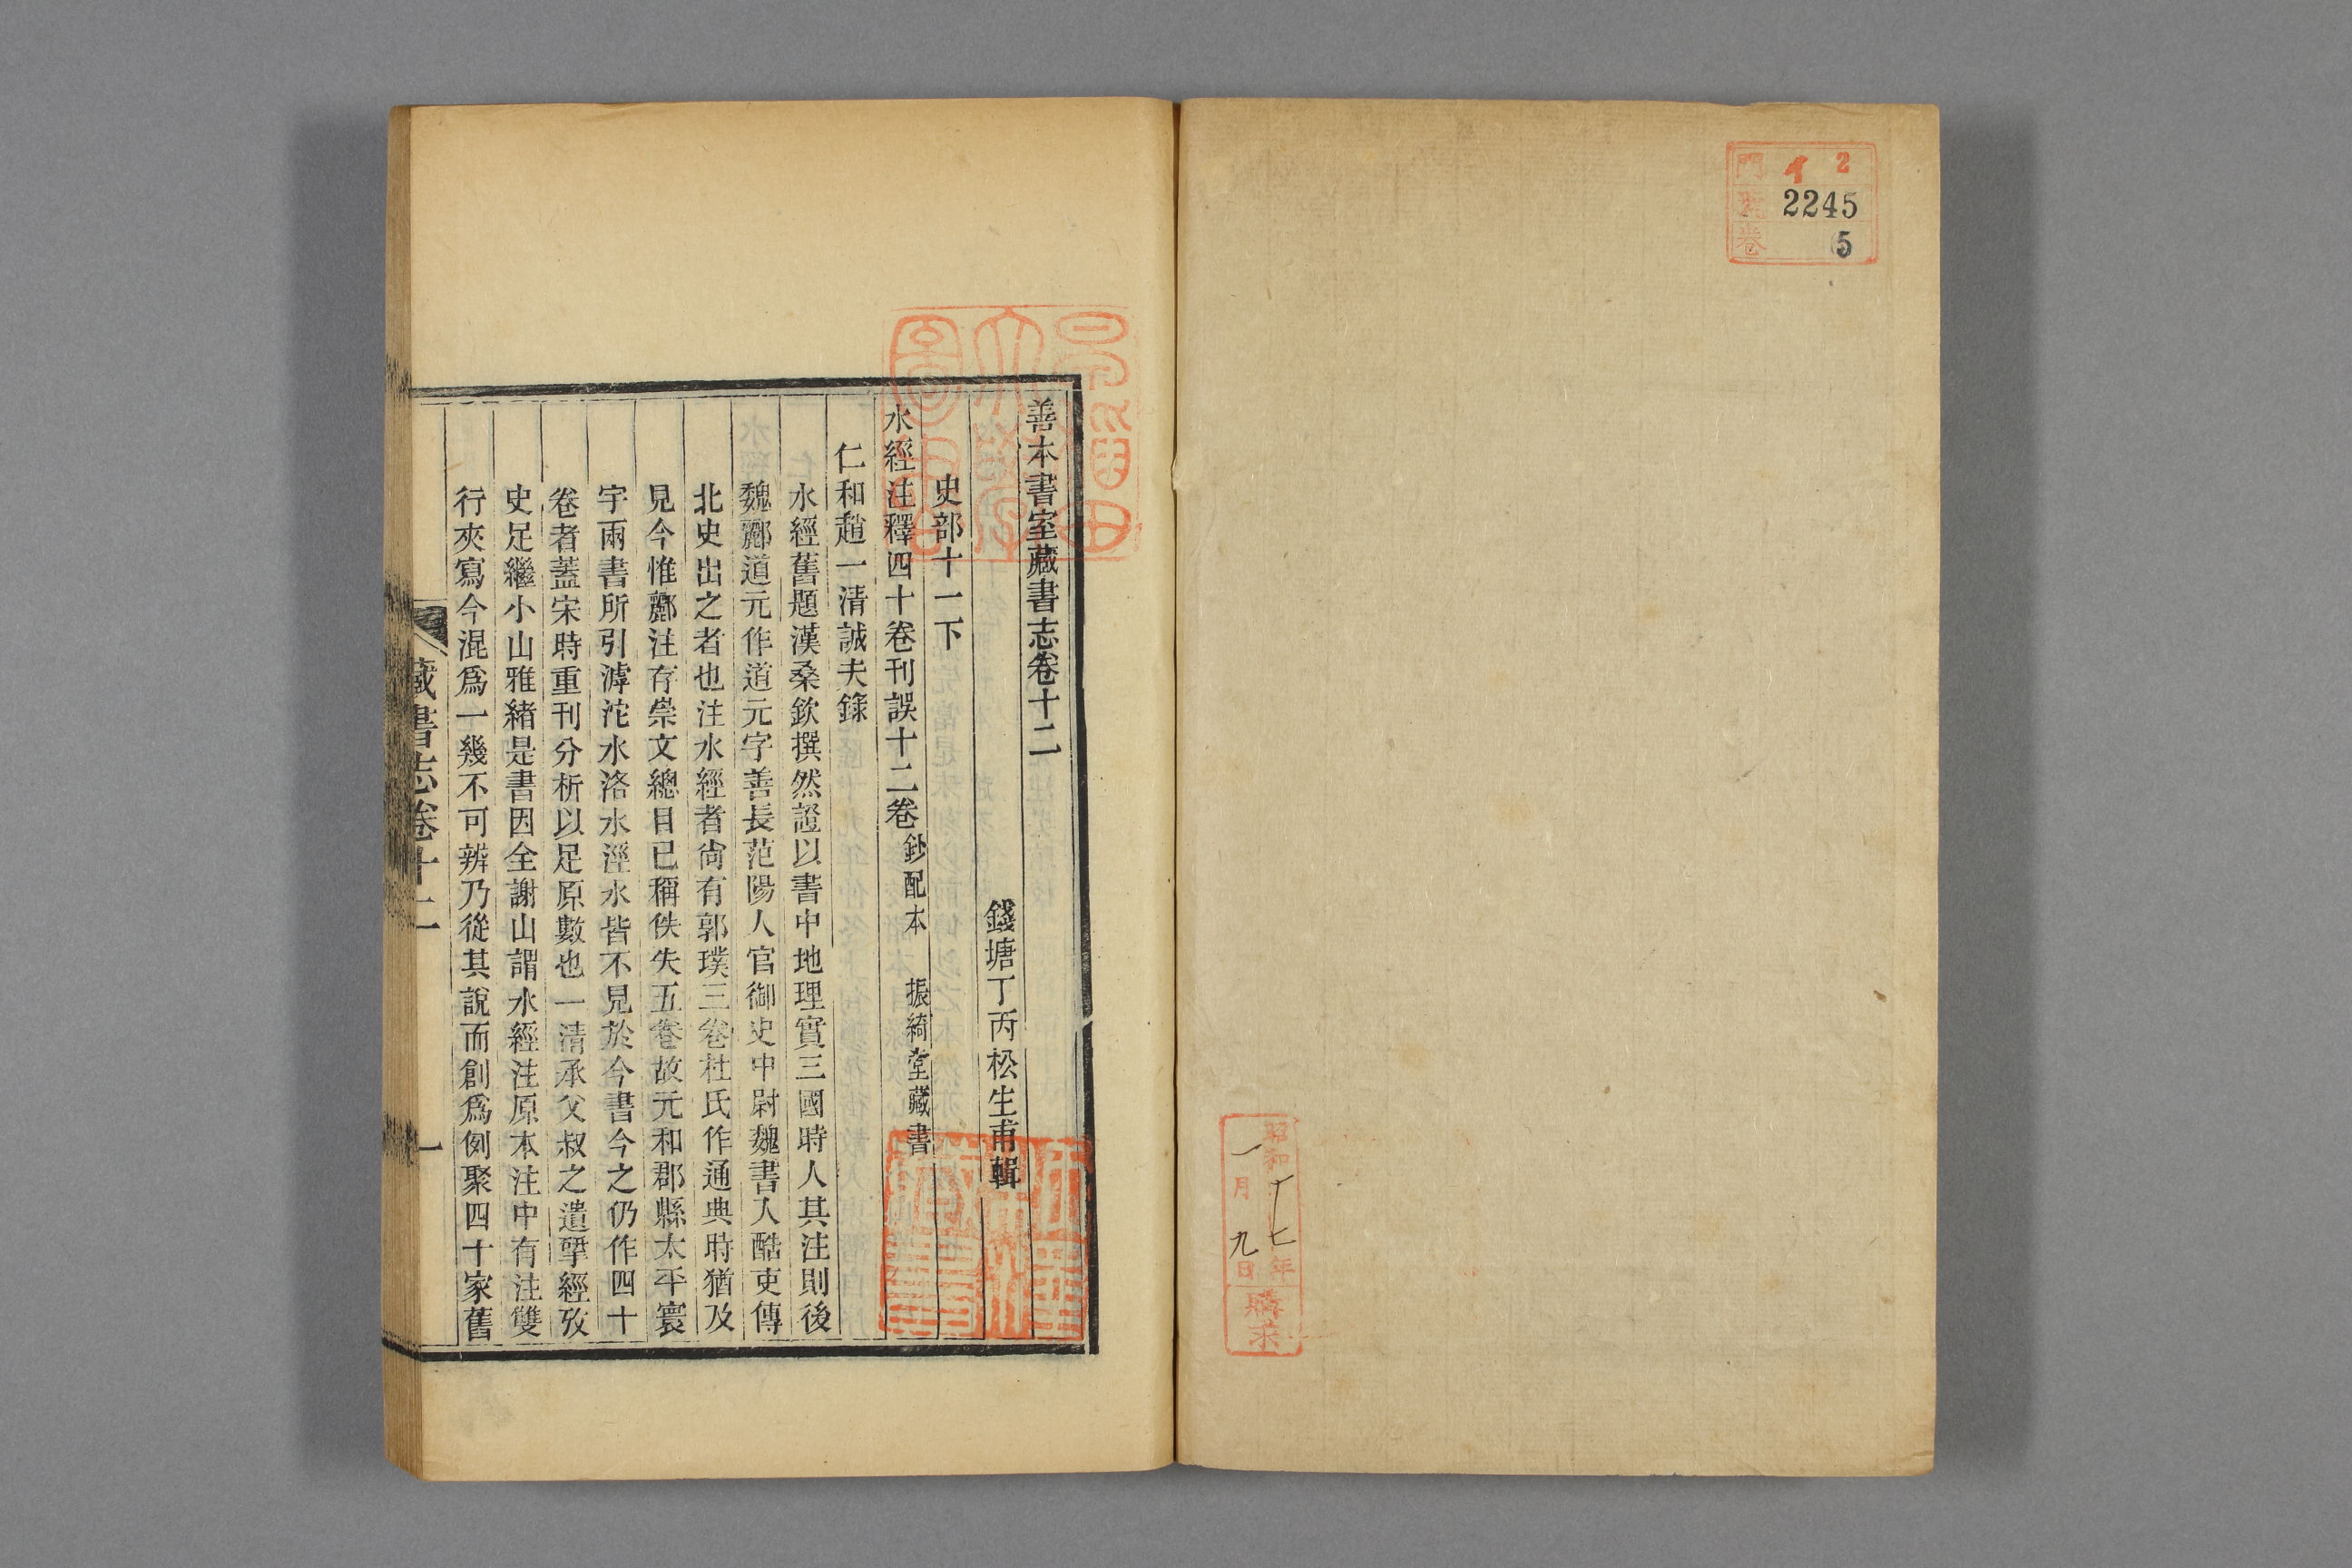 門 イ 2
號 2245
卷 5
昭和十七年
一月九日
購求
善本書室藏書志卷十二
錢塘丁丙松生甫輯
史部十一下
水經注釋四十卷刊誤十二卷 鈔配本 振綺堂藏書
仁和趙一清誠夫錄
水經舊題漢桑欽撰然證以書中地理實三國時人其注則後
魏酈道元作道元字善長范陽人官御史中尉魏書入酷吏傳
北史出之者也注水經者尙有郭璞三卷杜氏作通典時猶及
見今惟酈注存崇文總目已稱佚失五卷故元和郡縣太平寰
宇兩書所引滹沱水洛水涇水皆不見於今書今之仍作四十
卷者蓋宋時重刊分析以足原數也一清承父叔之遺揅經攷
史足繼小山雅緒是書因全謝山謂水經注原本注中有注雙
行夾寫今混爲一幾不可辨乃從其說而創爲例聚四十家舊
藏書志卷十二
一